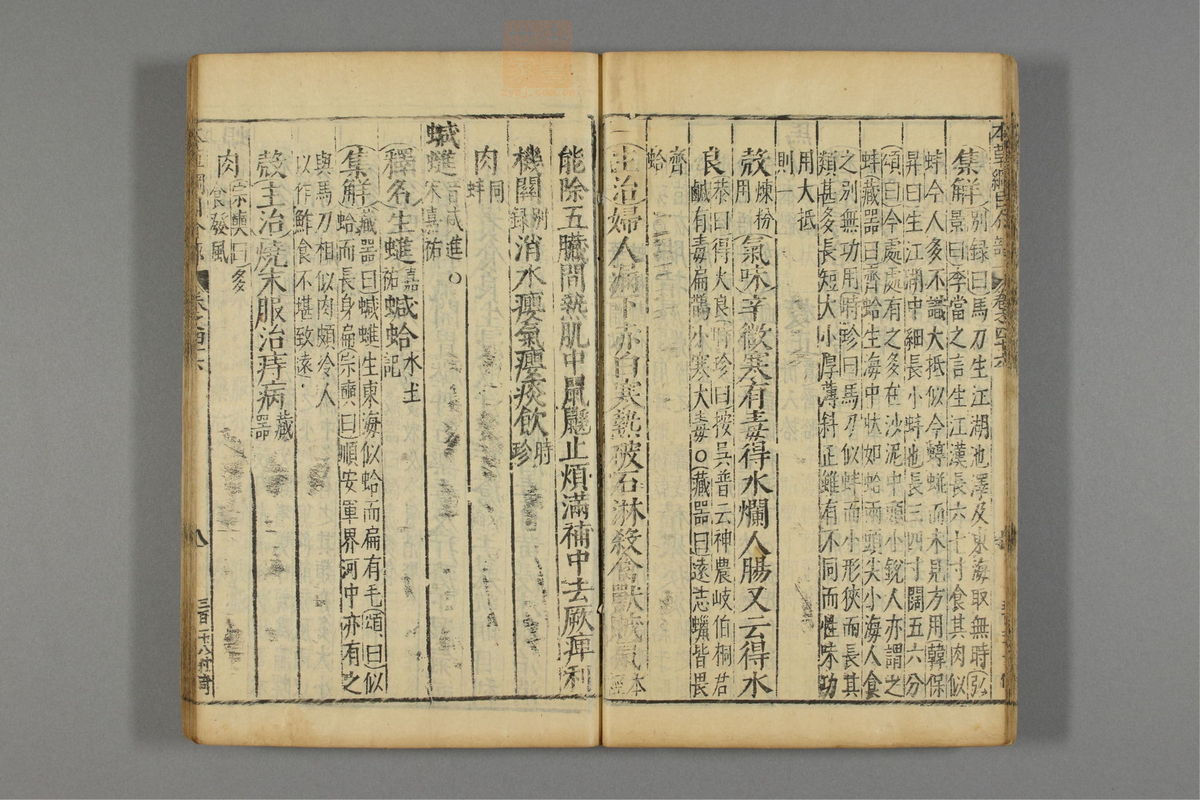 集解別録曰馬刀生江湖池澤及東海取無時弘
景曰李當之言生江漢長六七寸食其肉似
蚌今人多不識大抵似今蝏𧋁而未見方用韓保
昇曰生江湖中細長小蚌也長三四寸闊五六分
頌曰今處處有之多在沙泥中頭小鋭人亦謂之
蚌藏器曰齊蛤生海中狀如蛤兩頭尖小海人食
之别無功用時珍曰馬刀似蚌而小形狹而長其
類甚多長短大小厚薄斜正雖有不同而性味功
用大抵
則一
殼煉粉
用氣味辛微寒有毒得水爛人腸又云得水
良恭曰得火良時珍曰按吳普云神農岐伯桐君
鹹有毒扁鵲小寒大毒○藏器曰遠志蠟皆畏
齊
蛤
主治婦人漏下赤白寒熱破石淋殺禽獸賊氣本
經
能除五臟間熱肌中鼠鼷止煩滿補中去厥痺利
機關别
録消水癭氣癭痰飲時
珍
肉同
蚌
蝛𧍧音咸進○
宋嘉祐
釋名生𧍧嘉
祐蝛蛤水土
記
集解藏器曰蝛𧍧生東海似蛤而扁有毛頌曰似
蛤而長身扁宗奭曰順安軍界河中亦有之
與馬刀相似肉頗冷人
以作鮓食不堪致遠
殼主治燒末服治痔病藏
器
肉宗奭曰多
食發風